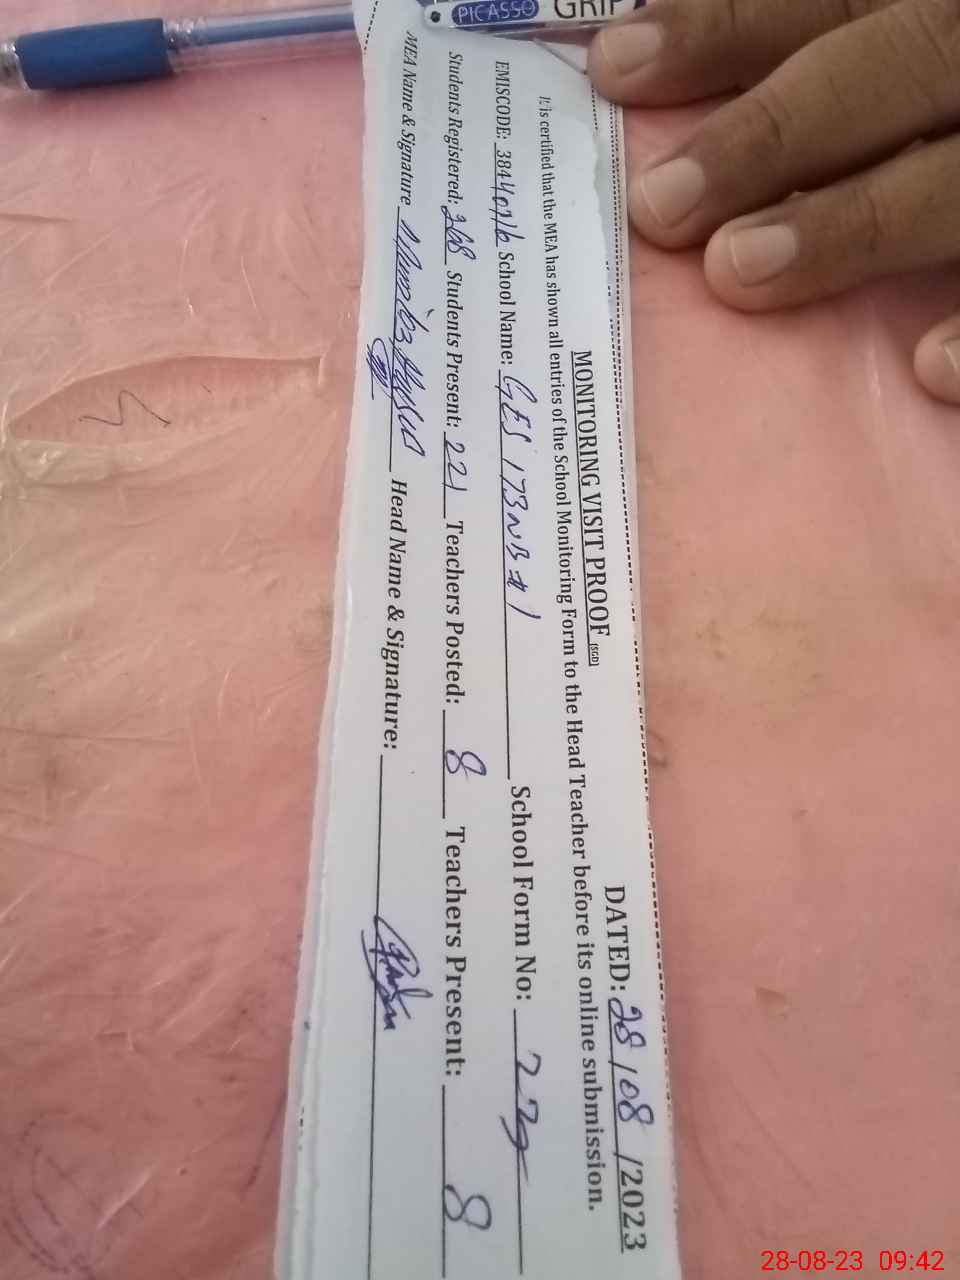 PICASSO GRIP
MONITORING VISIT PROOF (SGD) DATED: 28/08/2023
It is certified that the MEA has shown all entries of the School Monitoring Form to the Head Teacher before its online submission.
EMISCODE: 38440116 School Name: GES 173NB #1 School Form No:
Students Registered: 268 Students Present: 221 Teachers Posted: 8 Teachers Present: 8
MEA Name & Signature Head Name & Signature:
28-08-23 09:42